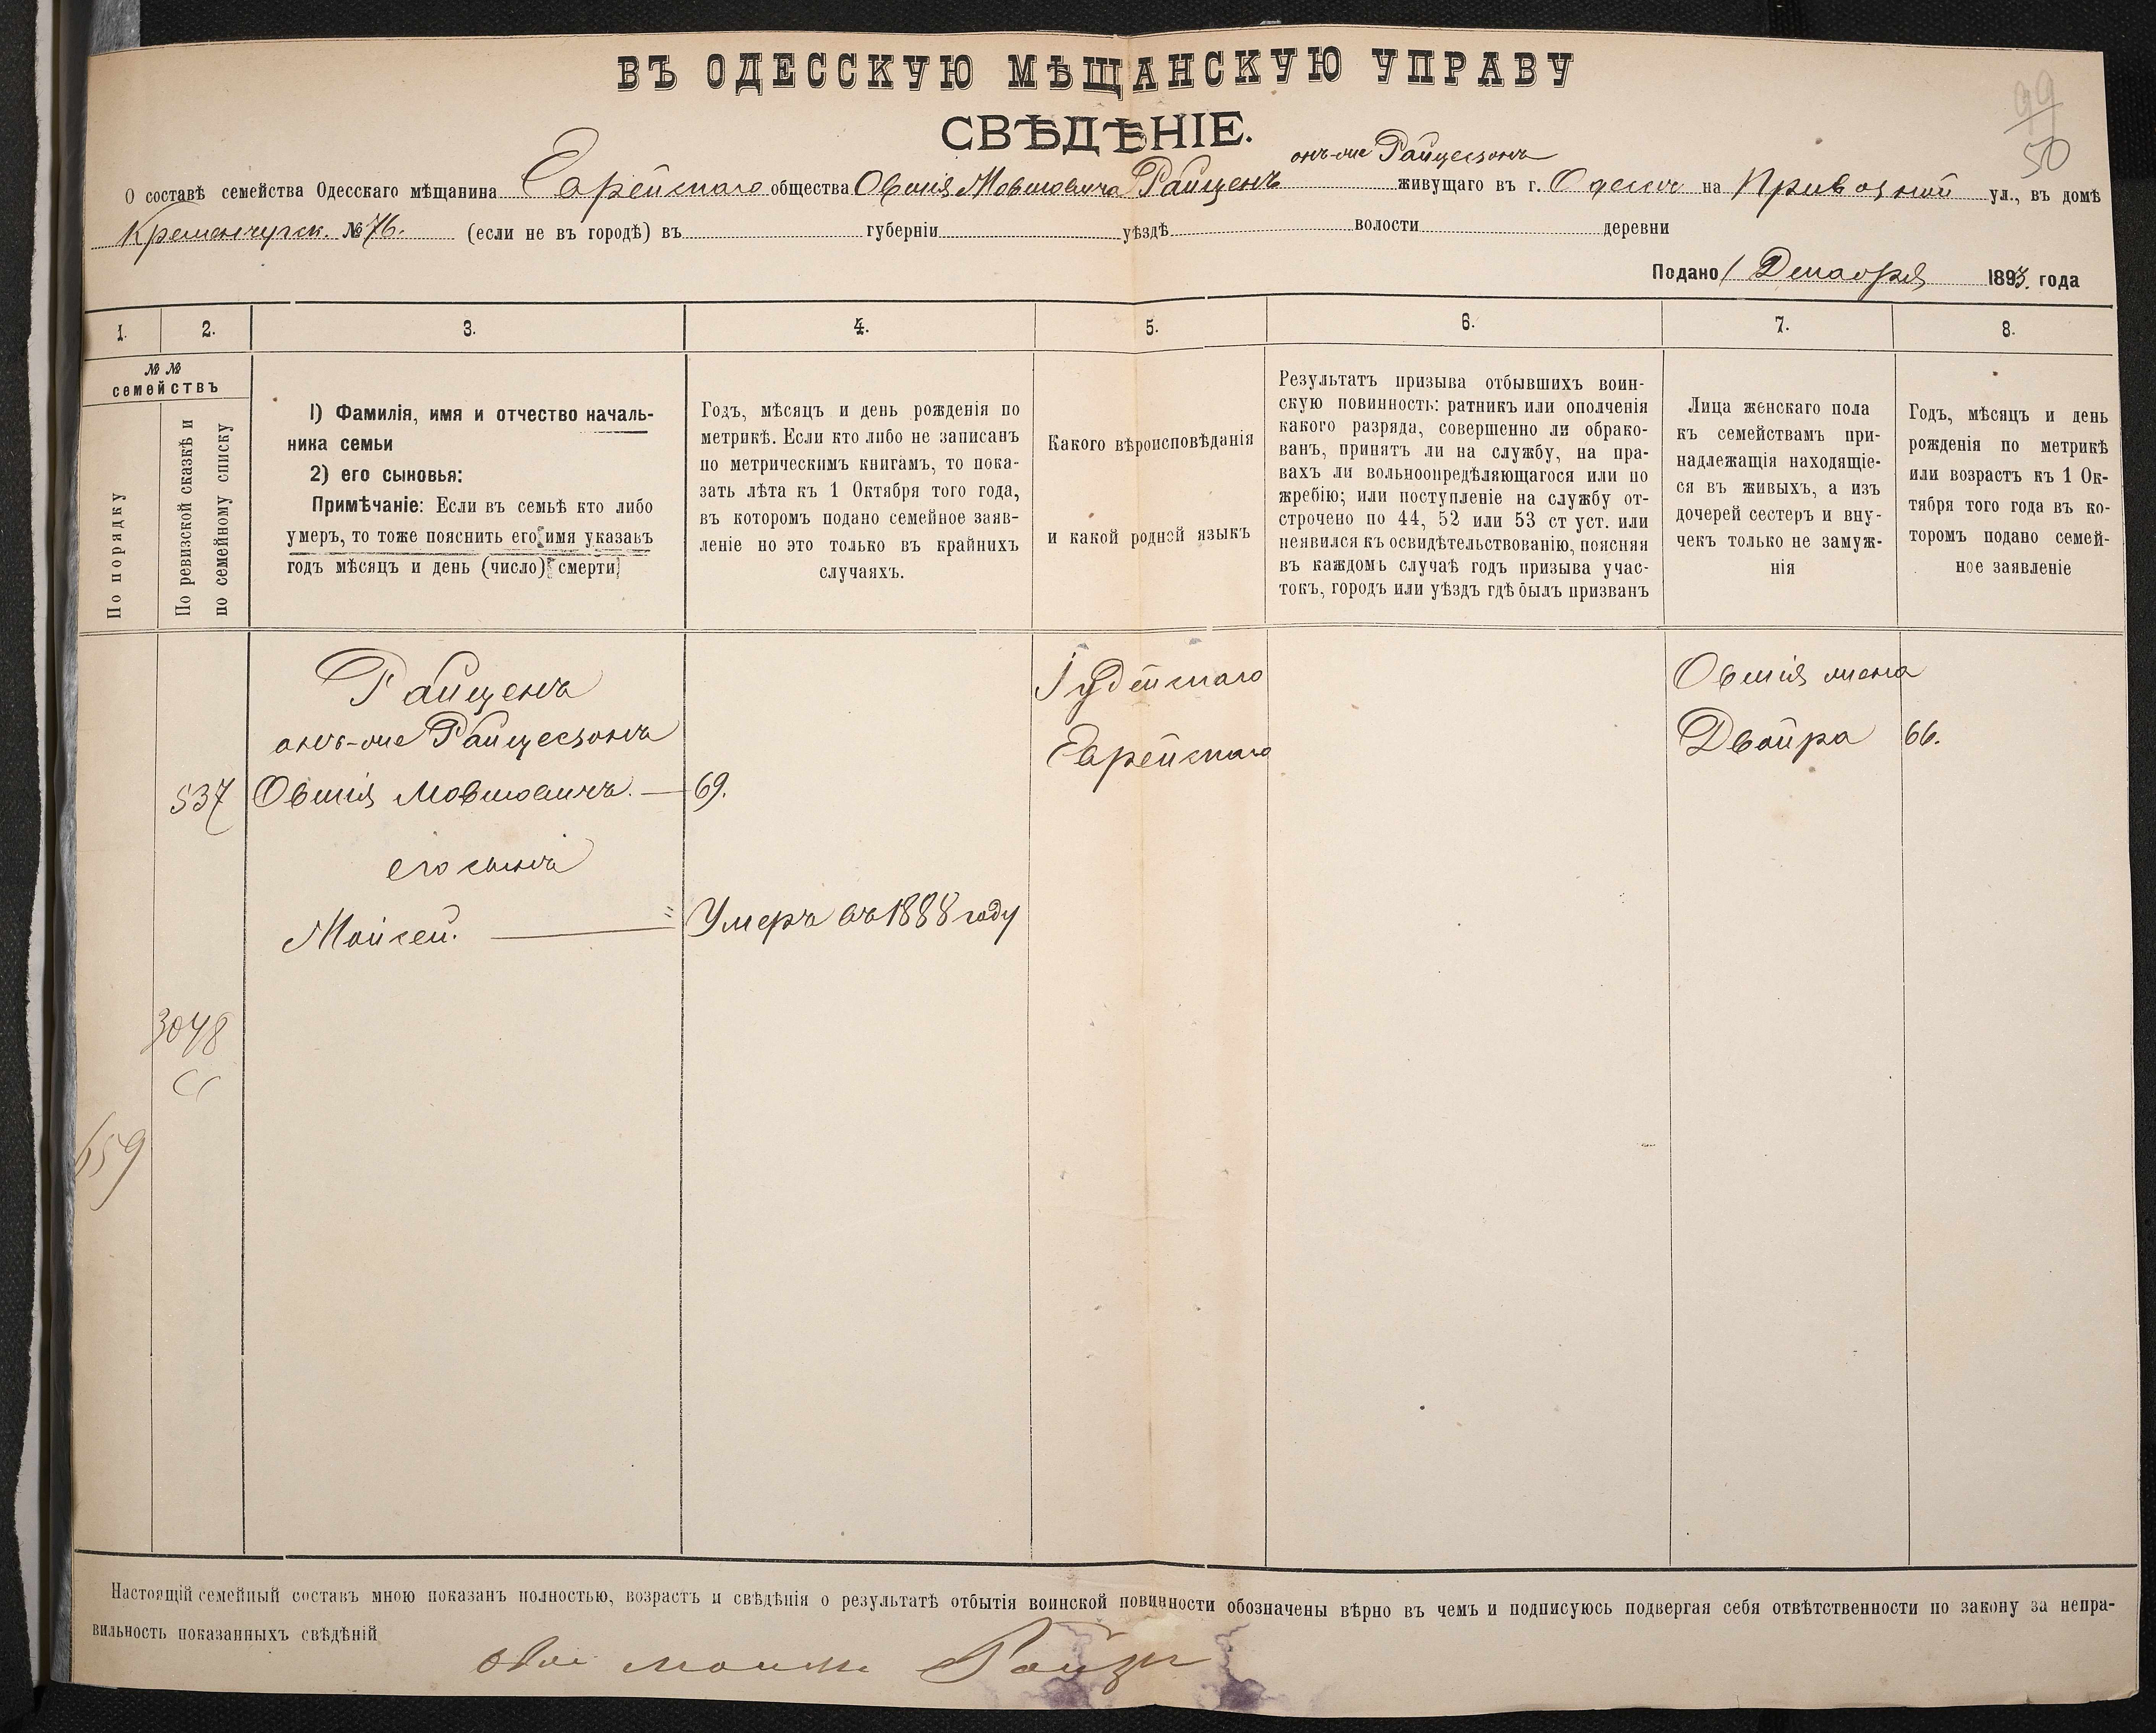 ВЪ ОДЕССКУЮ МѢЩАНСКУЮ УПРАВУ
СВѢДѢНІЕ.
99
50
онъ-же Райцесзонъ
О составѣ семейства Одесскаго мѣщанина Еврейскаго общества Овшія Мовшовича Райценъ живущаго въ г. Одессѣ на Привозной ул., въ домѣ
Кременчугск. № 76. (если не въ городѣ) въ губерніи уѣздѣ волости деревни
Подано 1 Декабря 1893. года
1. 2. 3. 4. 5. 6. 7. 8.
№ № семействъ
По порядку
По ревизской сказкѣ и
по семейному списку
1) Фамилія, имя и отчество началь-
ника семьи
2) его сыновья:
Примѣчаніе: Если въ семьѣ кто либо
умеръ, то тоже пояснить его имя указавъ
годъ мѣсяцъ и день (число) смерти
Годъ, мѣсяцъ и день рожденія по
метрикѣ. Если кто либо не записанъ
по метрическимъ книгамъ, то пока-
зать лѣта къ 1 Октября того года,
въ которомъ подано семейное заяв-
леніе но это только въ крайнихъ
случаяхъ.
Какого вѣроисповѣданія
и какой родной языкъ
Результатъ призыва отбывшихъ воин-
скую повинность: ратникъ или ополченія
какого разряда, совершенно ли обрако-
ванъ, принятъ ли на службу, на пра-
вахъ ли вольноопредѣляющагося или по
жребію; или поступленіе на службу от-
строчено по 44, 52 или 53 ст уст. или
неявился къ освидѣтельствованію, поясняя
въ каждомъ случаѣ годъ призыва учас-
токъ, городъ или уѣздъ гдѣ былъ призванъ
Лица женскаго пола
къ семействамъ при-
надлежащія находящіе-
ся въ живыхъ, а изъ
дочерей сестеръ и вну-
чекъ только не замуж-
нія
Годъ, мѣсяцъ и день
рожденія по метрикѣ
или возрастъ къ 1 Ок-
тября того года въ ко-
торомъ подано семей-
ное заявленіе
Райценъ
онъ-же Райцесзонъ
537 Овшія Мовшовичъ. — 69.
его сынъ
Мойсей. — Умеръ въ 1888 году
Іудейскаго
Еврейскаго
Овшія жена
Двойра 66.
3048
659
Настоящій семейный составъ мною показанъ полностью, возрастъ и свѣдѣнія о результатѣ отбытія воинской повинности обозначены вѣрно въ чемъ и подписуюсь подвергая себя отвѣтственности по закону за непра-
вильность показанныхъ свѣдѣній